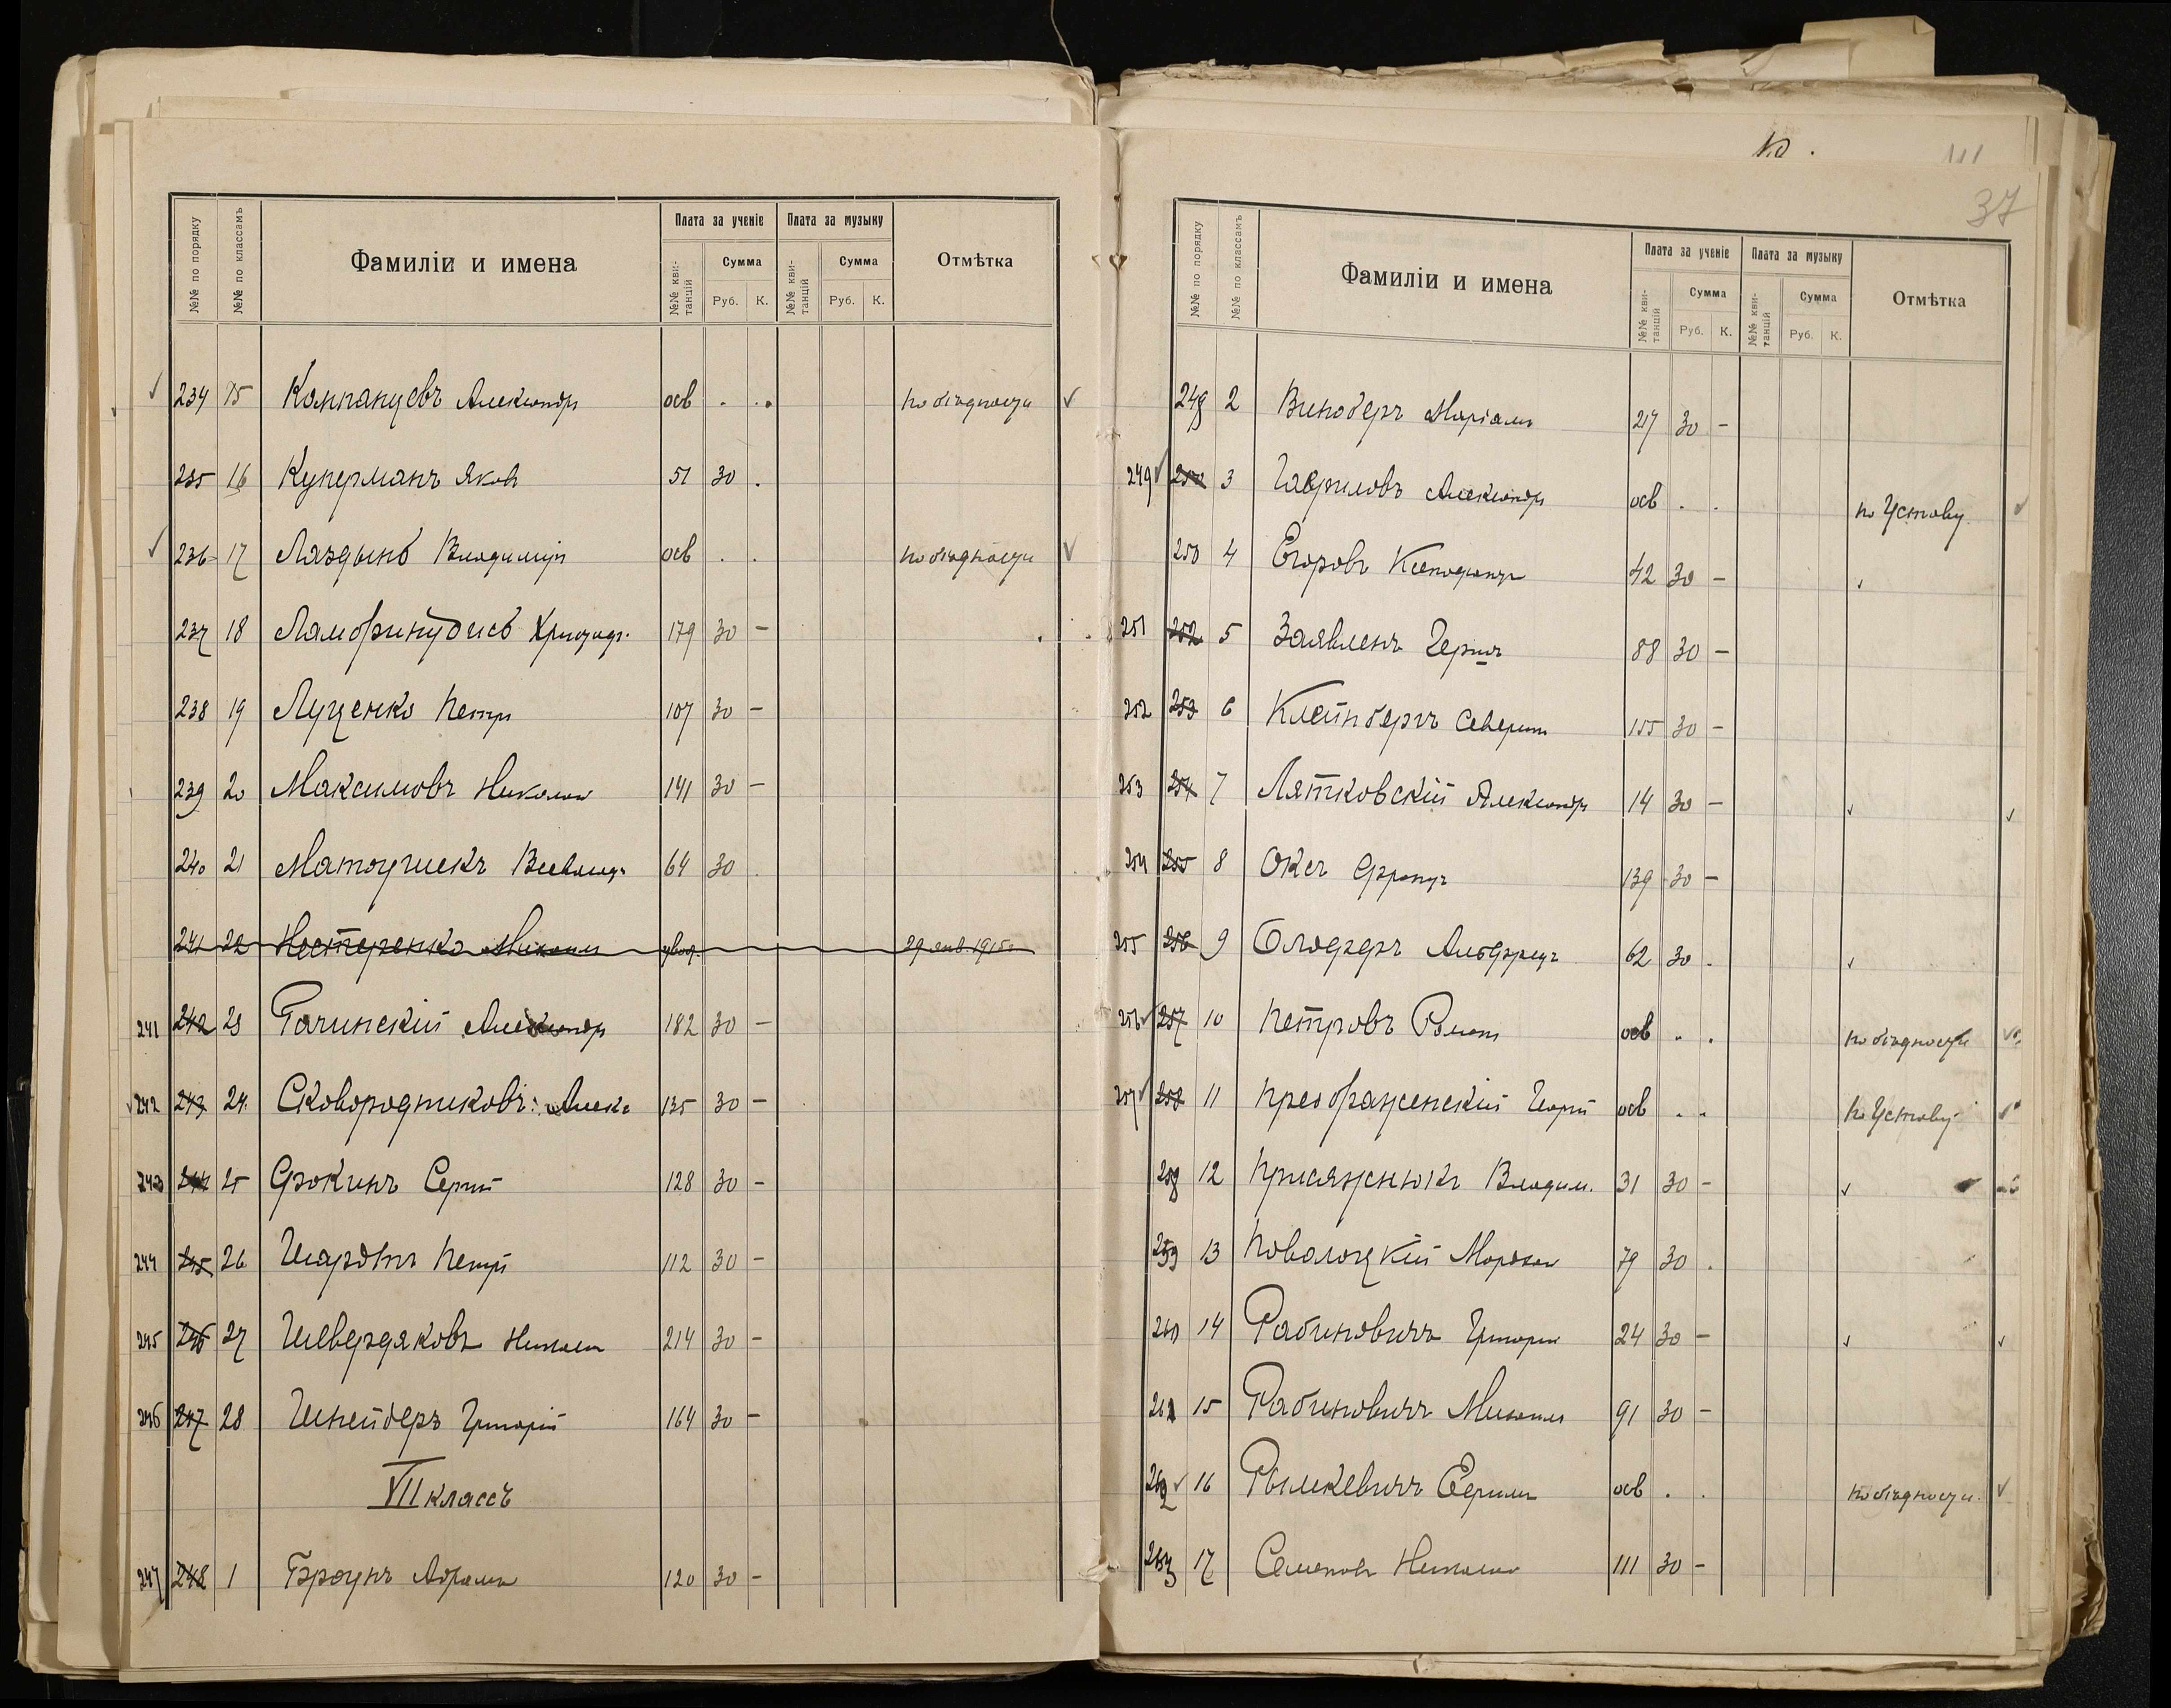 №№ по порядку №№ по классамъ Фамиліи и имена Плата за ученіе Плата за музыку Отмѣтка
№№ квитанцій Сумма №№ квитанцій Сумма
Руб. К. Руб. К.
234 15 Александръ осв . . по бѣдности
235 16 Куперманъ Яковъ 51 30 .
236 17 Лаздынь Владиміръ осв . . по бѣдности
237 18 179 30 –
238 19 Луценко Петръ 107 30 –
239 20 Максимовъ Николай 141 30 –
240 21 Матоушекъ Всеволодъ 64 30 .
241 22 Нестеренко Михаилъ 29 янв. 1915 г
241 242 23 Рачинскій Александръ 182 30 –
242 243 24 Сковородниковъ Алек 135 30 –
243 244 25 Фокинъ Сергѣй 128 30 –
244 245 26 Петръ 112 30 –
245 246 27 Шевердяковъ Николай 214 30 –
246 247 28 Шнейдеръ Григорій 164 30 –
VII классъ
247 248 1 Броунъ Абрамъ 120 30 –
10.
37
№№ по порядку №№ по классамъ Фамиліи и имена Плата за ученіе Плата за музыку Отмѣтка
№№ квитанцій Сумма №№ квитанцій Сумма
Руб. К. Руб. К.
248 2 30 –
249 250 3 Гавриловъ Александръ осв . . по Уставу
250 4 Егоровъ Ксенофонтъ 42 30 –
251 252 5 88 30 –
252 253 6 Клейнбергъ Северинъ 155 30 –
253 254 7 Лятковскій Александръ 14 30 –
254 255 8 Оксъ Францъ 139 30 –
255 256 9 Альфредъ 62 30 .
256 257 10 Петровъ Романъ осв . . по бѣдности
257 258 11 Преображенскій Георгій осв . . по Уставу
258 12 Присяжнюкъ Владим. 31 30 –
259 13 Поволоцкій 79 30 .
260 14 Рабиновичъ Григорій 24 30 –
261 15 Рабиновичъ Михаилъ 91 30 –
262 16 Рымкевичъ осв . . по бѣдности
263 17 Семеновъ Николай 111 30 –